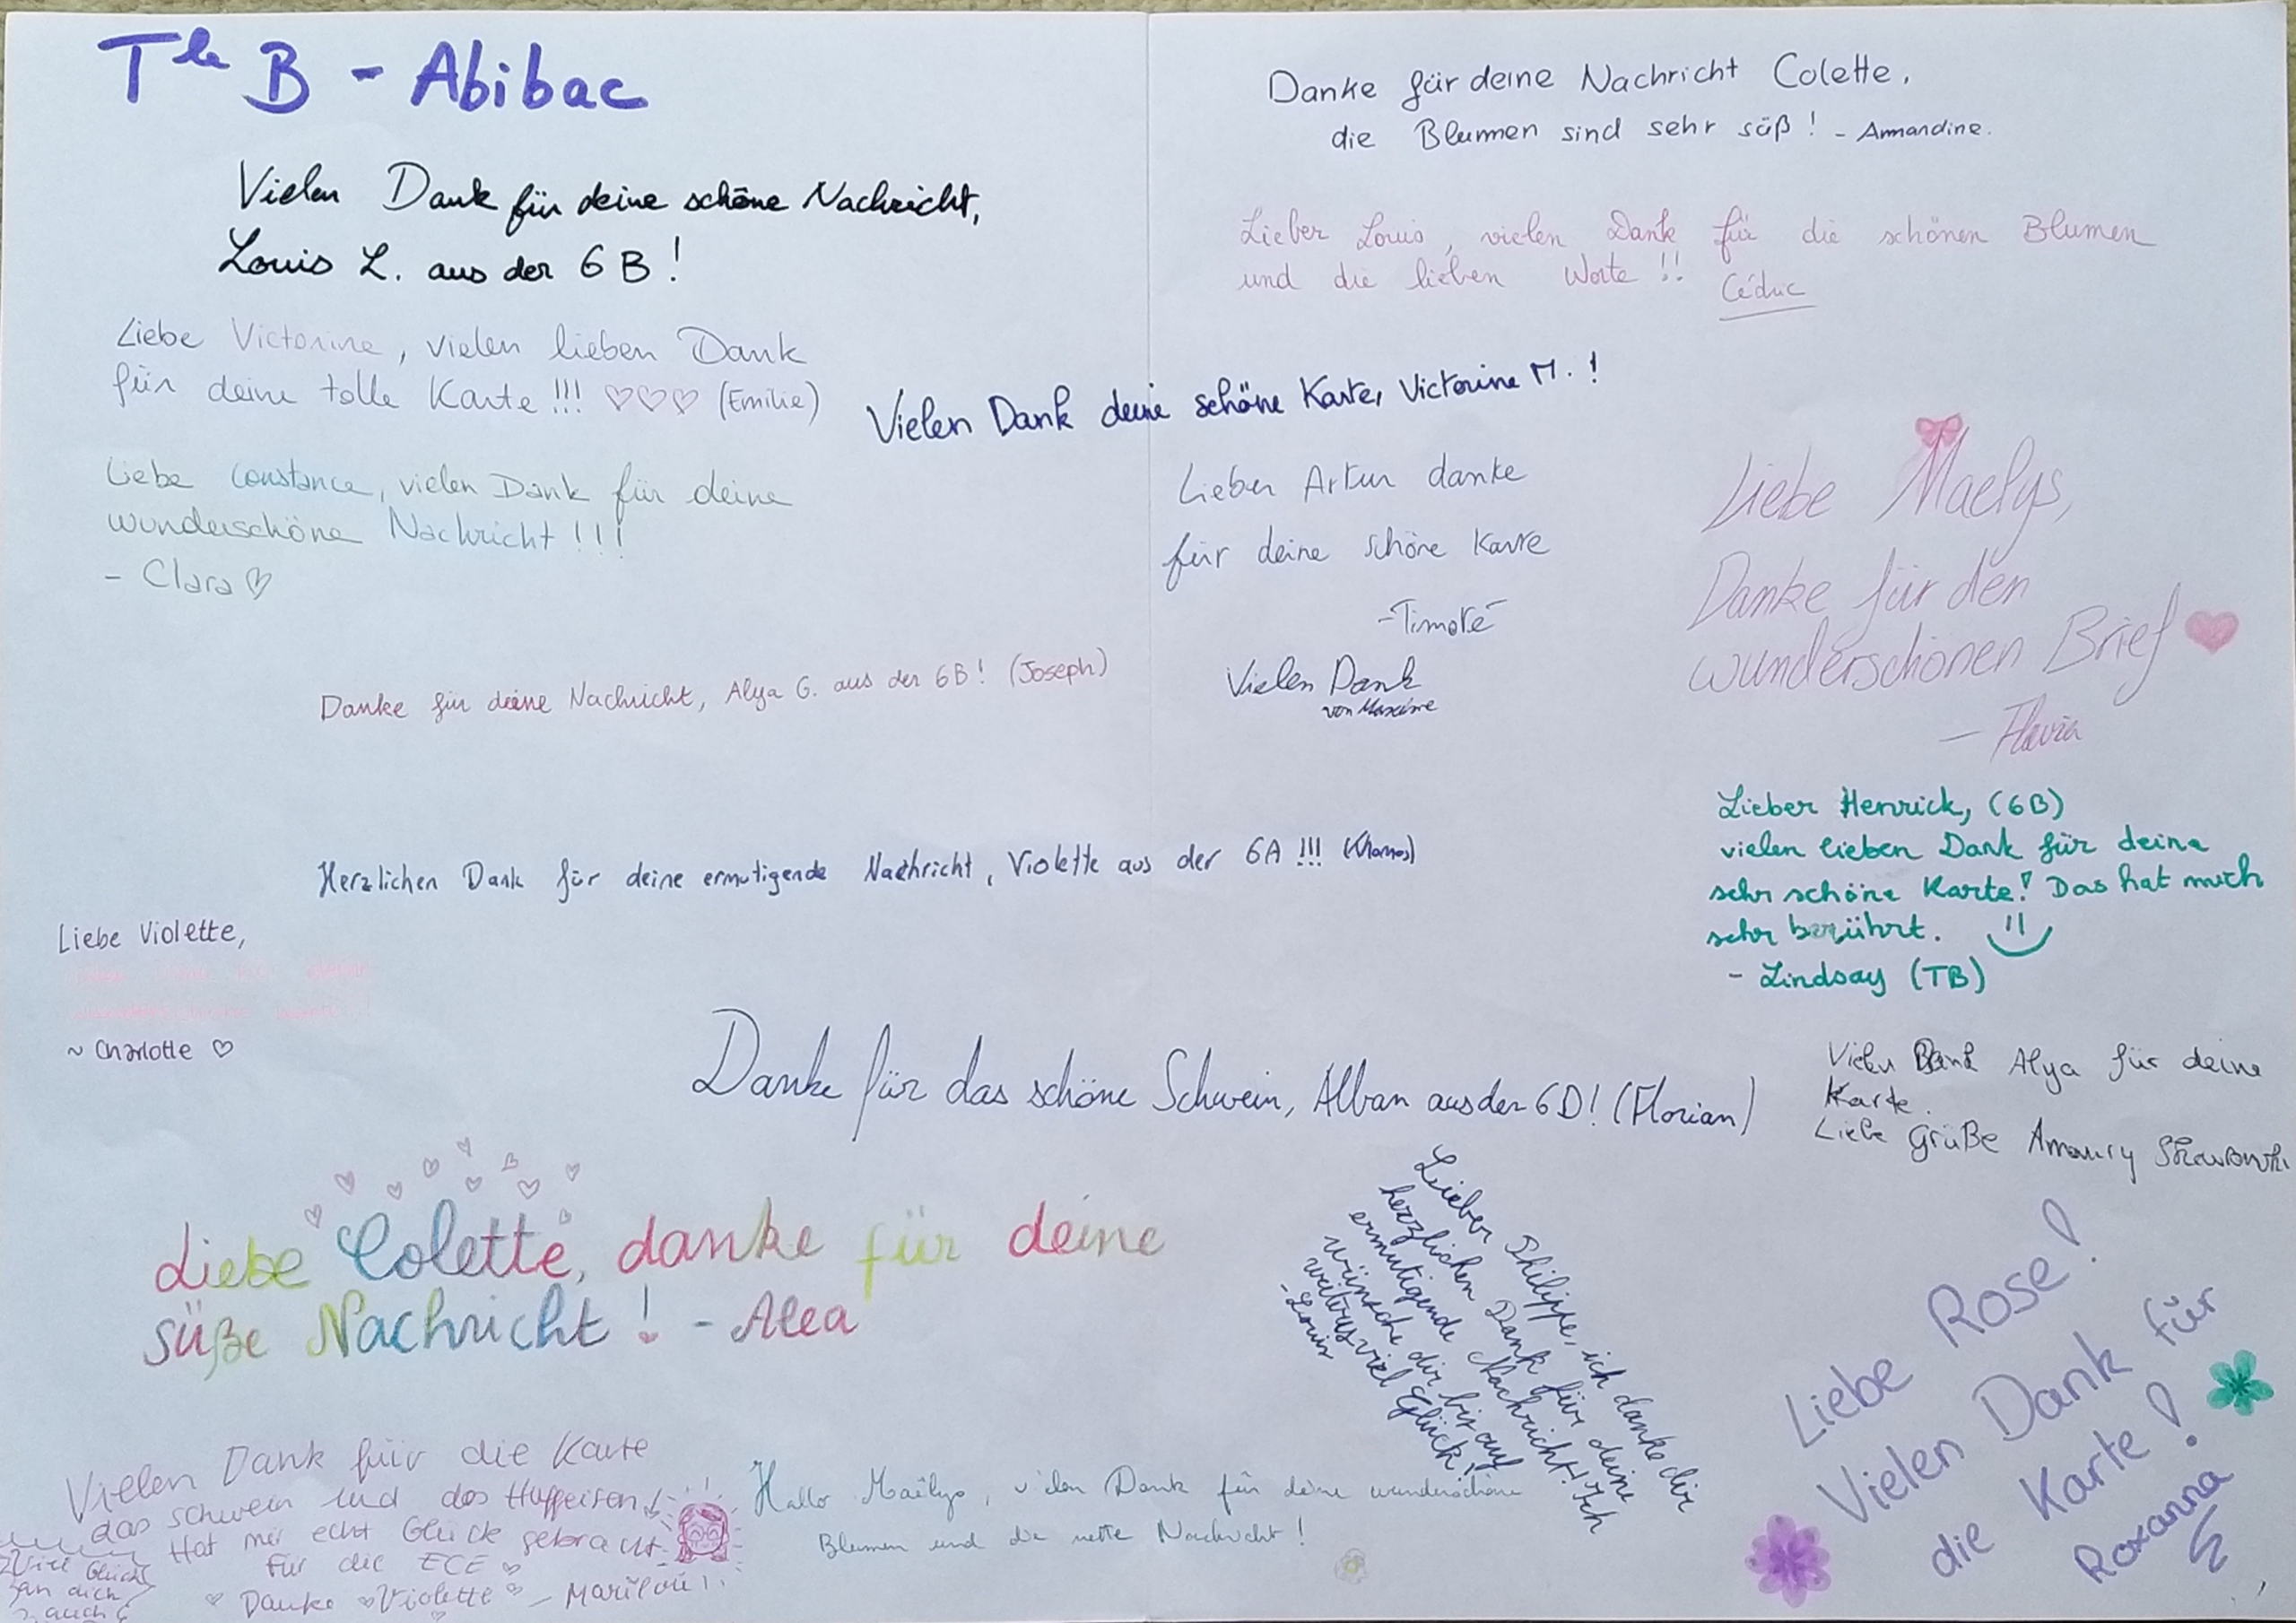 Tle B - Abibac
Vielen Dank für deine schöne Nachricht,
Louis L. aus der 6B!
Liebe Victorine, vielen lieben Dank
für deine tolle Karte!!! ♡♡♡ (Emilie)
Liebe Constance, vielen Dank für deine
wunderschöne Nachricht!!!
- Clara ♡
Danke für deine Nachricht Colette,
die Blumen sind sehr süß! - Armandine.
Lieber Louis, vielen Dank für die schönen Blumen
und die lieben Worte!!
Vielen Dank deine schöne Karte, Victorine M.!
Lieber Artur danke
für deine schöne Karte
-Timoté
Vielen Dank
von Maxime
Liebe Maelys,
Danke für den
wunderschönen Brief
- Flavia
Danke für deine Nachricht, Alya G. aus der 6B! (Joseph)
Herzlichen Dank für deine ermutigende Nachricht, Violette aus der 6A!!!
Lieber Henrick, (6B)
vielen lieben Dank für deine
sehr schöne Karte! Das hat mich
sehr berührt.
- Lindsay (TB)
Liebe Violette,
~ Charlotte ♡
Danke für das schöne Schwein, Alban aus der 6D! (Florian)
Vielen Dank Alya für deine
Karte.
Liebe Grüße Amaury
Liebe Colette, danke für deine
süße Nachricht! - Alea
Lieber Philippe, ich danke dir
herzlichen Dank für deine
ermutigende Nachricht! Ich
wünsche dir bis auf
weiteres viel Glück!
- Louis
Liebe Rose!
Vielen Dank für
die Karte!
Roxanna
Vielen Dank für die Karte
das schwein und das Huffeisen!
Hat mir echt Glück gebracht
für die ECE
Danke Violette - Marilou!
Viel Glück
an dich
auch
Hallo Maëlys, vielen Dank für deine wunderschöne
Blumen und die nette Nachricht!